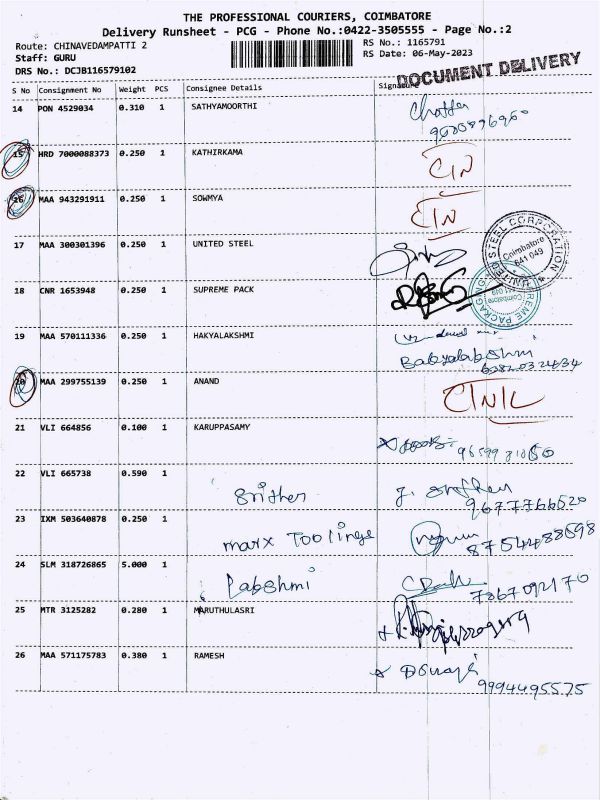 THE PROFESSIONAL COURIERS, COIMBATORE
Delivery Runsheet - PCG - Phone No.:0422-3505555 - Page No.:2
Route: CHINAVEDAMPATTI 2 RS No.: 1165791
Staff: GURU RS Date: 06-May-2023
DRS No.: DCJB116579102 DOCUMENT DELIVERY
S No Consignment No Weight PCS Consignee Details Signature
14 PON 4529034 0.310 1 SATHYAMOORTHI
15 HRD 7000088373 0.250 1 KATHIRKAMA
16 MAA 943291911 0.250 1 SOWMYA
17 MAA 300301396 0.250 1 UNITED STEEL
UNITED STEEL CORPORATION Coimbatore 641 049
18 CNR 1653948 0.250 1 SUPREME PACK
19 MAA 570111336 0.250 1 HAKYALAKSHMI
20 MAA 299755139 0.250 1 ANAND
21 VLI 664856 0.100 1 KARUPPASAMY
22 VLI 665738 0.590 1 Srither
9677766520
23 IXM 503640878 0.250 1 marx Toolings
8754488598
24 SLM 318726865 5.000 1 Lakshmi
7867092170
25 MTR 3125282 0.280 1 MARUTHULASRI
26 MAA 571175783 0.380 1 RAMESH
9994495575